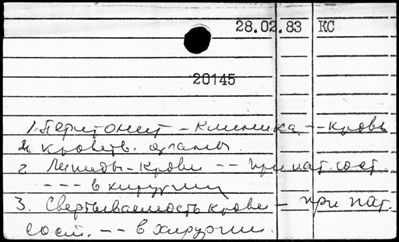 28.02.83 КС
20145
1. Перитонит - клиника -- кровь
и кроветв. органы
2. Липиды - крови -- при пат. сост.
--- в хирургии
3. Свертываемость крови - при пат.
сост. -- в хирургии.